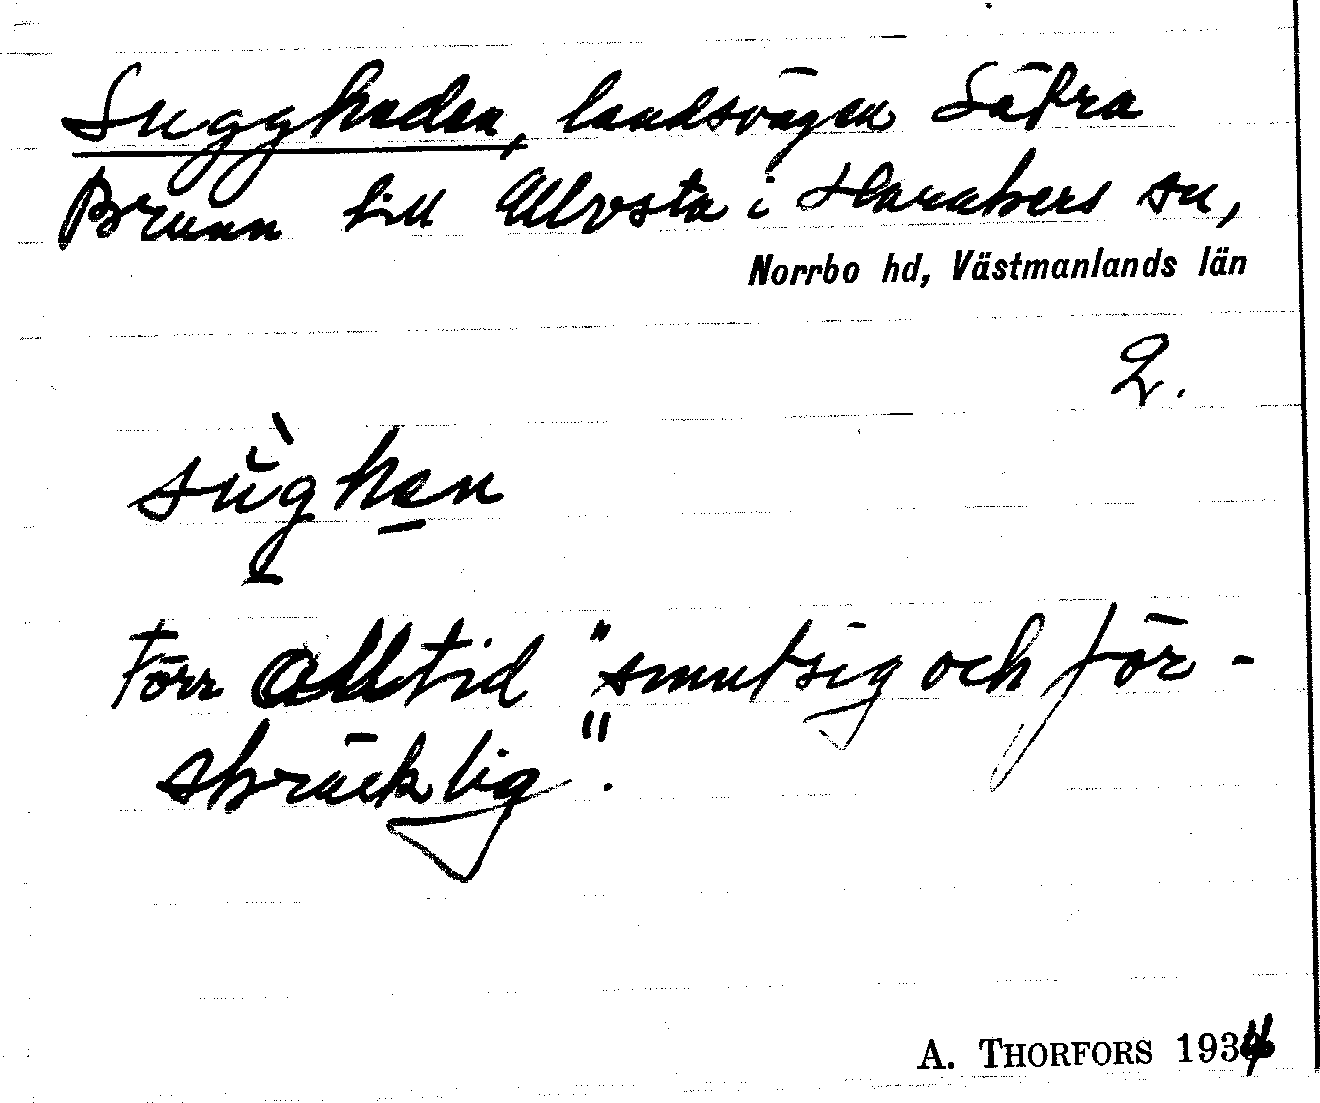 Suggheden, landsvägen Sätra
Brunn till Ulvsta i Harakers sn,
Norrbo hd, Västmanlands län
2.
sùghen
Förr alltid "smutsig och för-
skräcklig".
A. THORFORS 1934